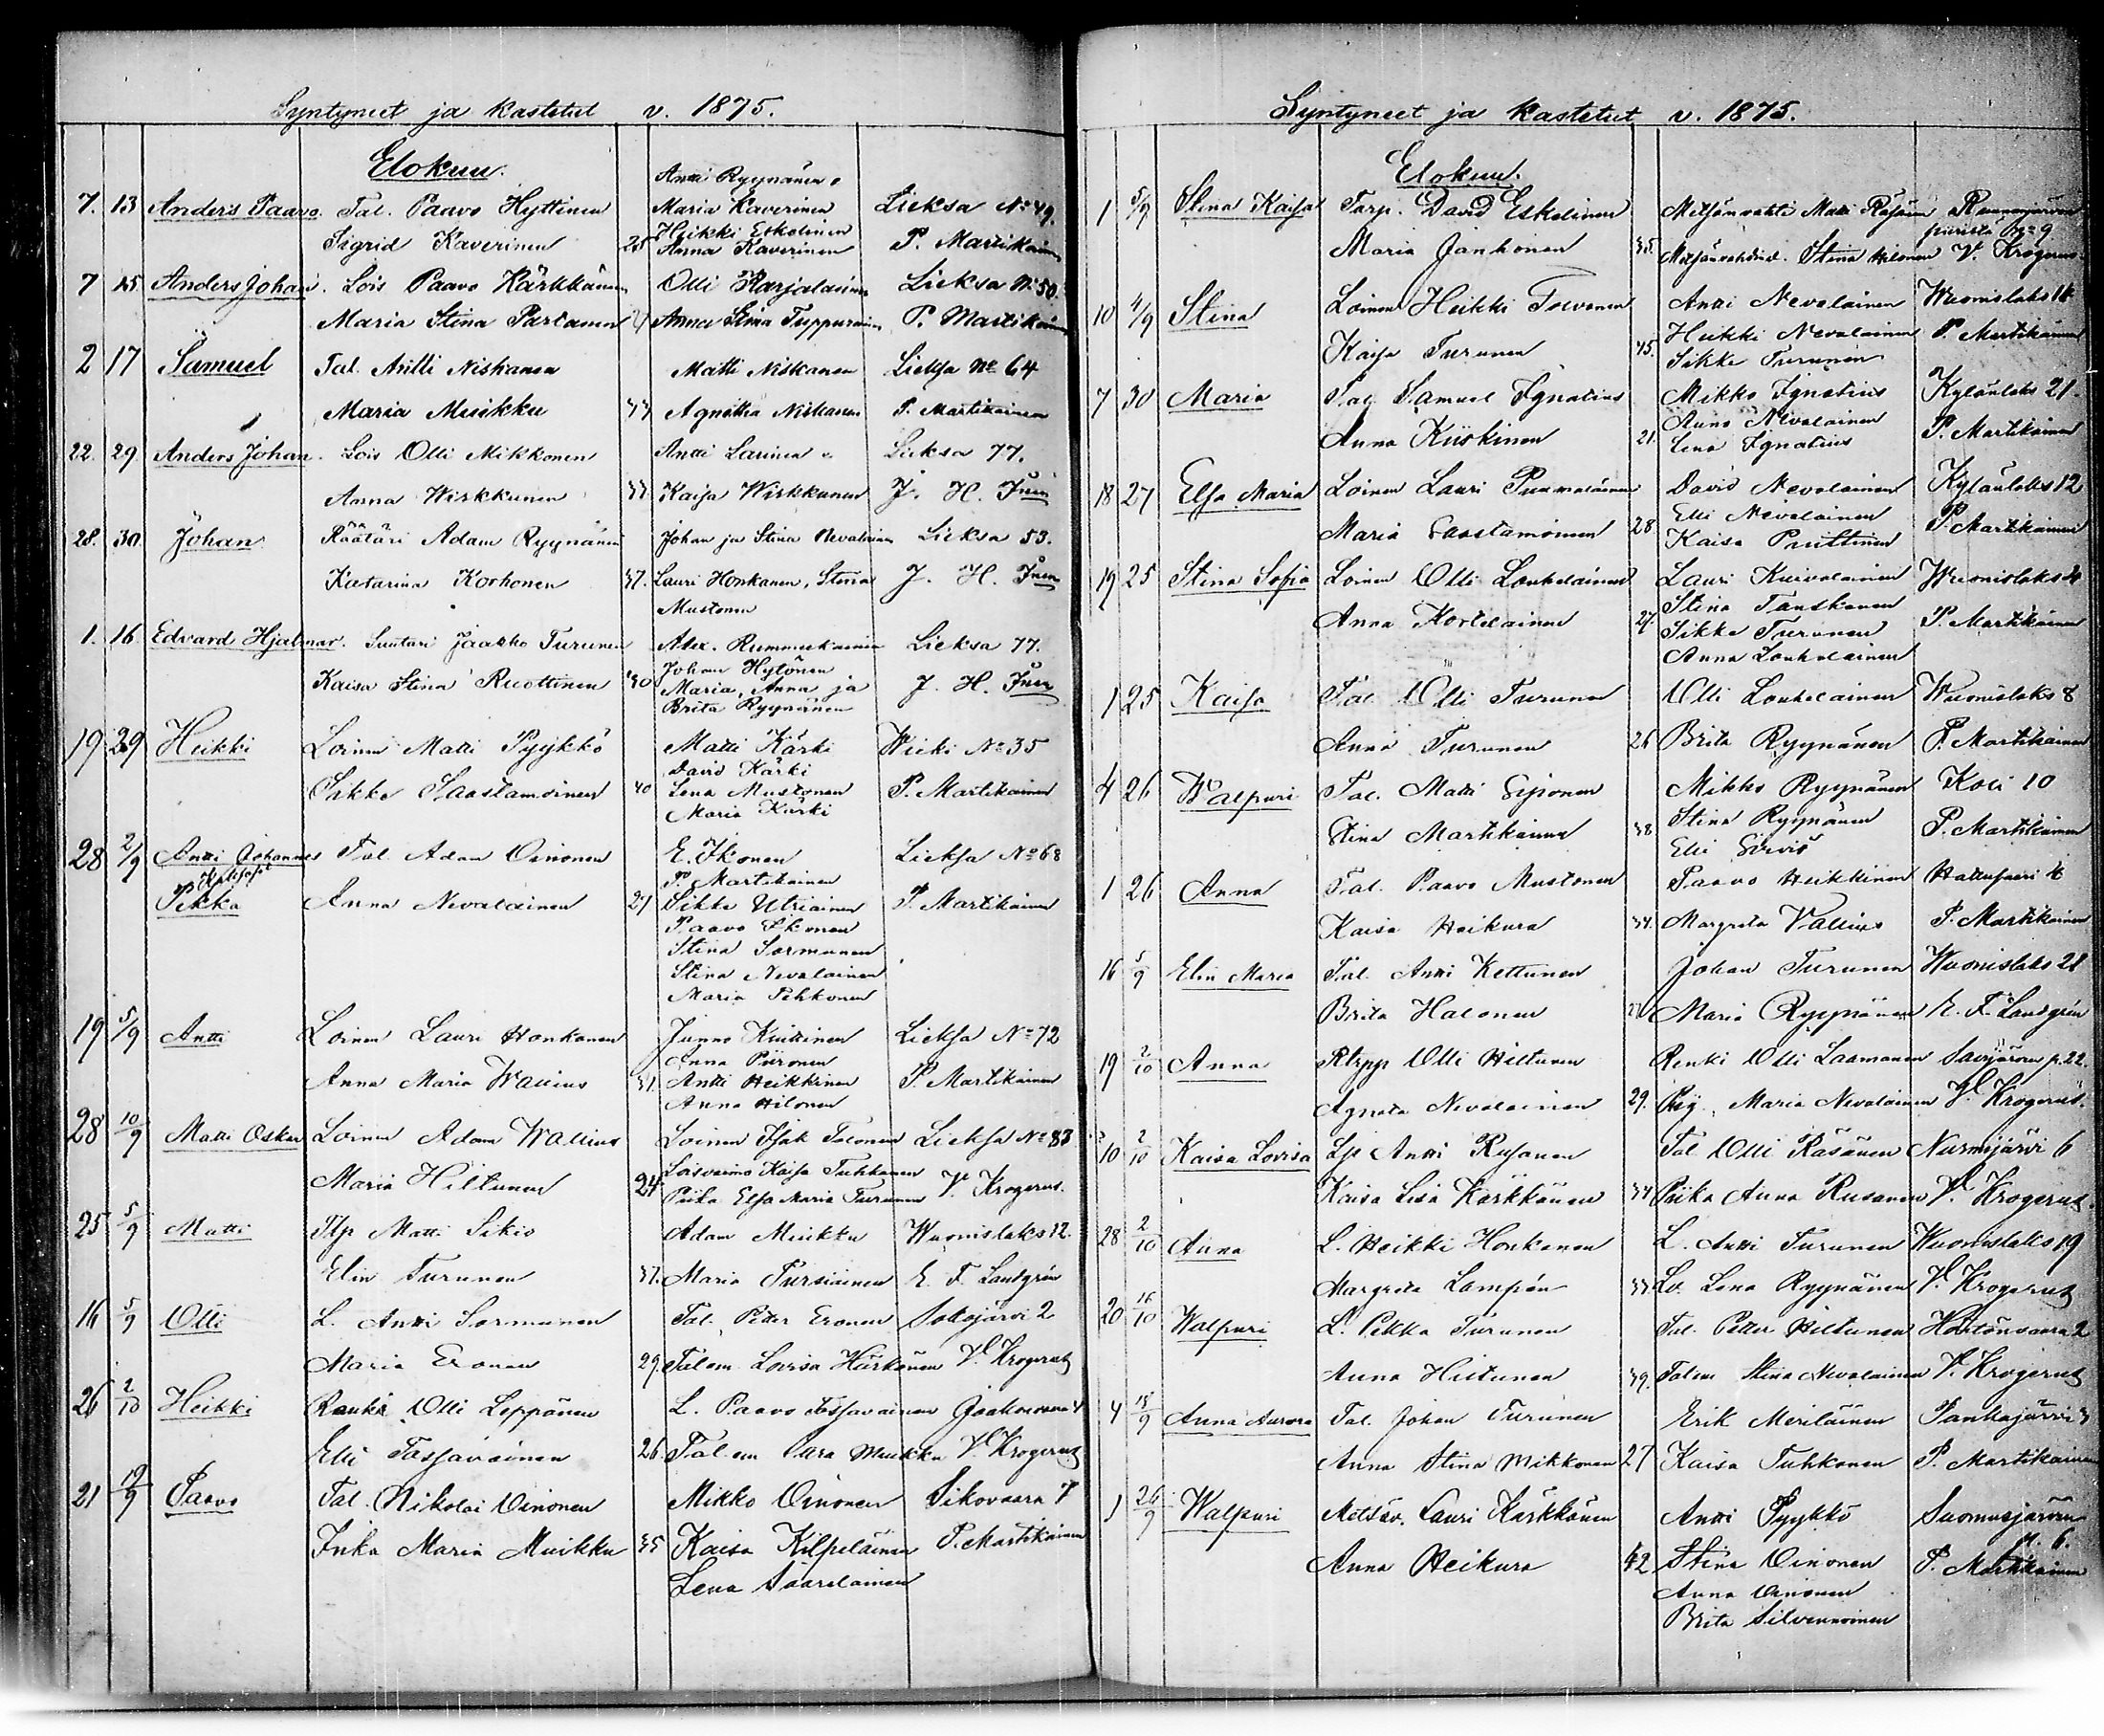 Syntyneet ja kastetut v. 1875.
Elokuu.
Antti Ryynänen
7. 13 Anders Paavo. Tal. Paavo Hyttinen Maria Kaverinen Lieksa No 49.
Heikki Eskelinen
Sigrid Kaverinen 25 Anna Kaverinen P. Martikainen
7 15 Anders Johan. Lois Paavo Kärkkäinen Olli Karjalainen Lieksa No 50.
Maria Stina Partanen Anna Stina Tuppurainen P. Martikainen
2 17 Samuel Tal. Antti Niskanen Matti Niskanen Lieksa No 64
Maria Muikku 33 Agnetha Niskanen P. Martikainen
22. 29. Anders Johan. Lois Olli Mikkonen Antti Larinen Lieksa 77.
Anna Wirkkunen 33 Kaisa Wirkkunen J. H.
28. 30. Johan Räätäri Adam Ryynänen Johan ja Stina Nevalainen Lieksa 53.
Katarina Korhonen 37. Lauri Honkanen, Stina J. H.
Mustonen
1. 16. Edvard Hjalmar. Suutari Jaakko Turunen Alex. Rummukainen Lieksa 77.
Johan Hytönen
Kaisa Stina Ruottinen 30 Maria, Anna ja J. H.
Brita Ryynänen
19 29 Heikki Loinen Matti Pyykkö Matti Kärki Wieki No 35
David Kärki
Sikke Saastamoinen 40 Lena Mustonen P. Martikainen
Maria Kärki
28 2/9 Antti Johannes Tal. Adam Oinonen E. Ikonen Lieksa No 68
Kaksoset P. Martikainen
Pekka Anna Nevalainen 27 Sikke Utriainen P. Martikainen
Paavo Ikonen
Stina Sormunen
Stina Nevalainen
Maria Pehkonen
19 5/9 Antti Loinen Lauri Honkanen Junno Kuittinen Lieksa No 72
Anna Piironen
Anna Maria Wallius 31. Antti Heikkinen P. Martikainen
Anna Hilonen
28 10/9 Matti Oskar Loinen Adam Wallius Loinen Isak Tolonen Lieksa No 83
Loisvaimo Kaisa Tuhkanen
Maria Hiltunen 24. Piika Elsa Maria Turunen V. Krogerus.
25 5/9 Matti Itp Matti Sikiö Adam Muikku Wuonislaks 12.
Elin Turunen 37. Maria Pursiainen E. F. Landgrén
16 5/9 Olli L. Antti Sormunen Tal. Petter Eronen Sokojärvi 2
Maria Eronen 29. Tal em. Lovisa Härkönen V. Krogerus
26 2/10 Heikki Renki Olli Leppänen L. Paavo Tossavainen
Elli Tossavainen 26. Tal. em Clara Muikku V. Krogerus
21 19/9 Paavo Tal. Nikolai Oinonen Mikko Oinonen Sikovaara 7
Inka Maria Muikku 35 Kaisa Kilpeläinen P. Martikainen
Lena Saarelainen
Syntyneet ja kastetut v. 1875.
Elokuu.
1 5/9 Stina Kaisa Torp. David Eskelinen Metsänvahti Matti Räsänen
puisto No 9
Maria Jänhonen 35. Stina Hilonen V. Krogerus
10 4/9 Stina Loinen Heikki Tolvanen Antti Nevalainen Wuonislaks 14
Heikki Nevalainen P. Martikainen
Kaisa Turunen 45. Sikke Turunen
7 30 Maria Tal. Samuel Ignatius Mikko Ignatius Kylänlaks 21.
Anna Nevalainen
Anna Kiiskinen 21. Lena Ignatius P. Martikainen
18 27 Elsa Maria Loinen Lauri Puumalainen David Nevalainen Kylänlaks 12
Elli Nevalainen
Maria Saastamoinen 28. Kaisa Puittinen P. Martikainen
19 25 Stina Sofia Loinen Olli Louhelainen Lauri Kuivalainen Wuonislaks 4
Stina Tanskanen
Anna Kortelainen 27. Sikke Turunen P. Martikainen
Anna Louhelainen
1 25 Kaisa Tal. Olli Turunen Olli Louhelainen Wuonislaks 8
Anna Turunen 26 Brita Ryynänen P. Martikainen
4 26 Walpuri Tal. Matti Sironen Mikko Ryynänen Koli 10
Stina Ryynänen
Stina Martikainen 38. Elli Sirviö P. Martikainen
1 26 Anna Tal. Paavo Mustonen Paavo Heikkinen Hattusaari 4
Kaisa Heikura 34. Margreta Vallius P. Martikainen
16 5/9 Elin Maria Tal. Antti Kettunen Johan Turunen Wuonislaks 21
Brita Halonen Maria Ryynänen E. F. Landgrén
19 2/10 Anna Olli Hiltunen Renki Olli Laamanen Savijärven p. 22.
Agneta Nevalainen 29. Maria Nevalainen V. Krogerus.
10 2/10 Kaisa Lovisa Antti Rusanen Tal Olli Räsänen Nurmijärvi 6
Kaisa Lisa Kärkkäinen 34 Piika Anna Rusanen V. Krogerus.
28 2/10 Anna L. Heikki Honkanen L. Antti Turunen Wuonislaks 19
Margreta Lampén 33. Lv. Lena Ryynänen V. Krogerus
20 16/10 Walpuri L. Pekka Turunen Tal. Petter Hiltunen 2
Anna Hiltunen 39. Talem Stina Nevalainen V. Krogerus
4 18/9 Anna Aurora Tal. Johan Turunen Erik Meriläinen Pankajärvi 3
Anna Stina Mikkonen 27 Kaisa Tuhkanen P. Martikainen
1 26/9 Walpuri Metsäv. Lauri Kärkkäinen Antti Pyykkö Suomusjärven
p. 6.
Anna Heikura 42 Stina Oinonen P. Martikainen
Anna Oinonen
Brita Silvennoinen